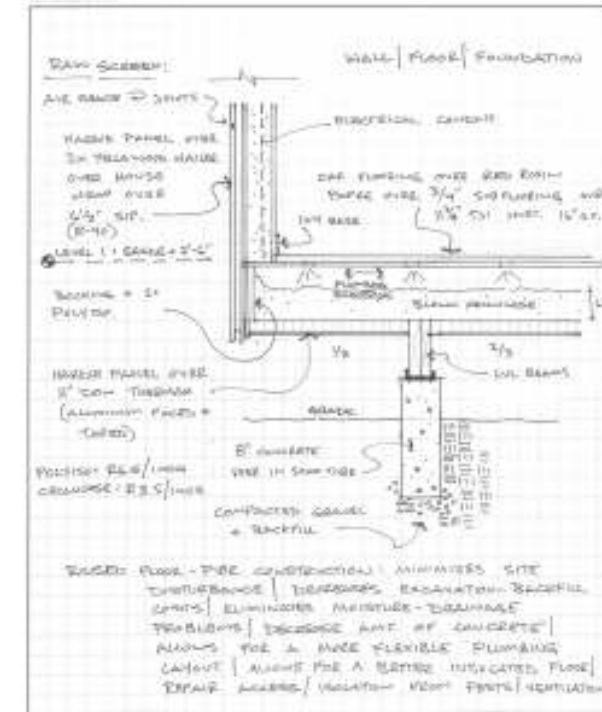 RAIN SCREEN:
WALL | FLOOR | FOUNDATION
AIR @ JOINTS
ELECTRICAL
HARDIE PANEL OVER
OVER HOUSE
WRAP OVER
6 1/2" SIP.
(R-40)
OAK FLOORING OVER RED ROSIN
PAPER OVER 3/4" SUBFLOORING OVER
11 7/8" TJI JOIST. 16" O.C.
1x4 BASE
LEVEL 1 : GRADE + 2'-6"
PLUMBING
ELECTRICAL
BLOWN
BLOCKING + 2"
1/3
2/3
LVL BEAMS
HARDIE PANEL OVER
(ALUMINUM FACED +
TAPED)
GRADE
8" CONCRETE
PIER IN SONOTUBE
POLYISO: R6.5/INCH
CELLULOSE: R3.5/INCH
COMPACTED GRAVEL
+ BACKFILL
RAISED FLOOR - PIER CONSTRUCTION: MINIMIZES SITE
DISTURBANCE | DECREASES EXCAVATION-BACKFILL
COSTS | ELIMINATES MOISTURE-DRAINAGE
PROBLEMS | DECREASE AMT OF CONCRETE |
ALLOWS FOR A MORE FLEXIBLE PLUMBING
LAYOUT | ALLOWS FOR A BETTER INSULATED FLOOR |
REPAIR ACCESS / ISOLATION FROM PESTS / VENTILATION